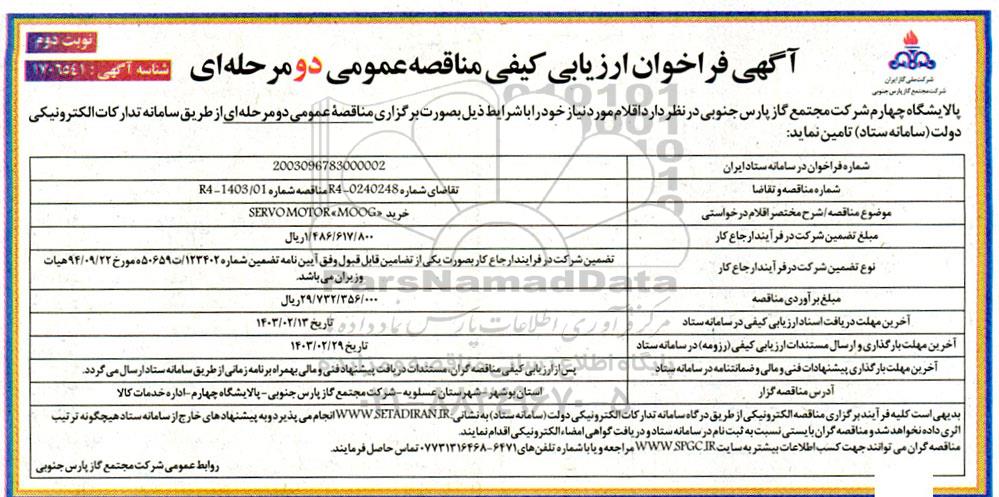 نوبت دوم
شناسه آگهی : ۱۷۰۶۵۴۱
شرکت ملی گاز ایران
شرکت مجتمع گاز پارس جنوبی
آگهی فراخوان ارزیابی کیفی مناقصه عمومی دو مرحله‌ای
پالایشگاه چهارم شرکت مجتمع گاز پارس جنوبی در نظر دارد اقلام مورد نیاز خود را با شرایط ذیل بصورت برگزاری مناقصهٔ عمومی دو مرحله‌ای از طریق سامانه تدارکات الکترونیکی
دولت (سامانه ستاد) تامین نماید:
شماره فراخوان در سامانه ستاد ایران 2003096783000002
شماره مناقصه و تقاضا تقاضای شماره R4-0240248 مناقصه شماره R4-1403/01
موضوع مناقصه/ شرح مختصر اقلام درخواستی خرید SERVO MOTOR «MOOG»
مبلغ تضمین شرکت در فرآیند ارجاع کار ۱/۴۸۶/۶۱۷/۸۰۰ ریال
نوع تضمین شرکت در فرآیند ارجاع کار تضمین شرکت در فرایند ارجاع کار بصورت یکی از تضامین قابل قبول وفق آیین نامه تضمین شماره ۱۲۳۴۰۲/ت۵۰۶۵۹ه مورخ ۹۴/۰۹/۲۲ هیات
وزیران می‌باشد.
مبلغ برآوردی مناقصه ۲۹/۷۳۲/۳۵۶/۰۰۰ ریال
آخرین مهلت دریافت اسناد ارزیابی کیفی در سامانه ستاد تاریخ ۱۴۰۳/۰۲/۱۳
آخرین مهلت بارگذاری و ارسال مستندات ارزیابی کیفی (رزومه) در سامانه ستاد تاریخ ۱۴۰۳/۰۲/۲۹
آخرین مهلت بارگذاری پیشنهادات فنی و مالی و ضمانتنامه در سامانه ستاد پس از ارزیابی کیفی مناقصه گران مستندات دریافت پیشنهاد فنی و مالی بهمراه برنامه زمانی از طریق سامانه ستاد ارسال می گردد.
آدرس مناقصه گزار استان بوشهر - شهرستان عسلویه - شرکت مجتمع گاز پارس جنوبی - پالایشگاه چهارم - اداره خدمات کالا
بدیهی است کلیه فرآیند برگزاری مناقصه الکترونیکی از طریق درگاه سامانه تدارکات الکترونیکی دولت (سامانه ستاد) به نشانی: WWW.SETADIRAN.IR انجام می پذیرد و به پیشنهادهای خارج از سامانه ستاد هیچگونه ترتیب
اثری داده نخواهد شد و مناقصه گران بایستی نسبت به ثبت نام در سامانه ستاد و دریافت گواهی امضاء الکترونیکی اقدام نمایند.
مناقصه گران می توانند جهت کسب اطلاعات بیشتر به سایت WWW.SPGC.IR مراجعه و یا با شماره تلفن‌های ۶۴۷۱-۰۷۷۳۱۳۱۶۴۶۸ تماس حاصل فرمایند.
روابط عمومی شرکت مجتمع گاز پارس جنوبی
ParsNamadData
مرکز فرآوری اطلاعات پارس نماد داده ها